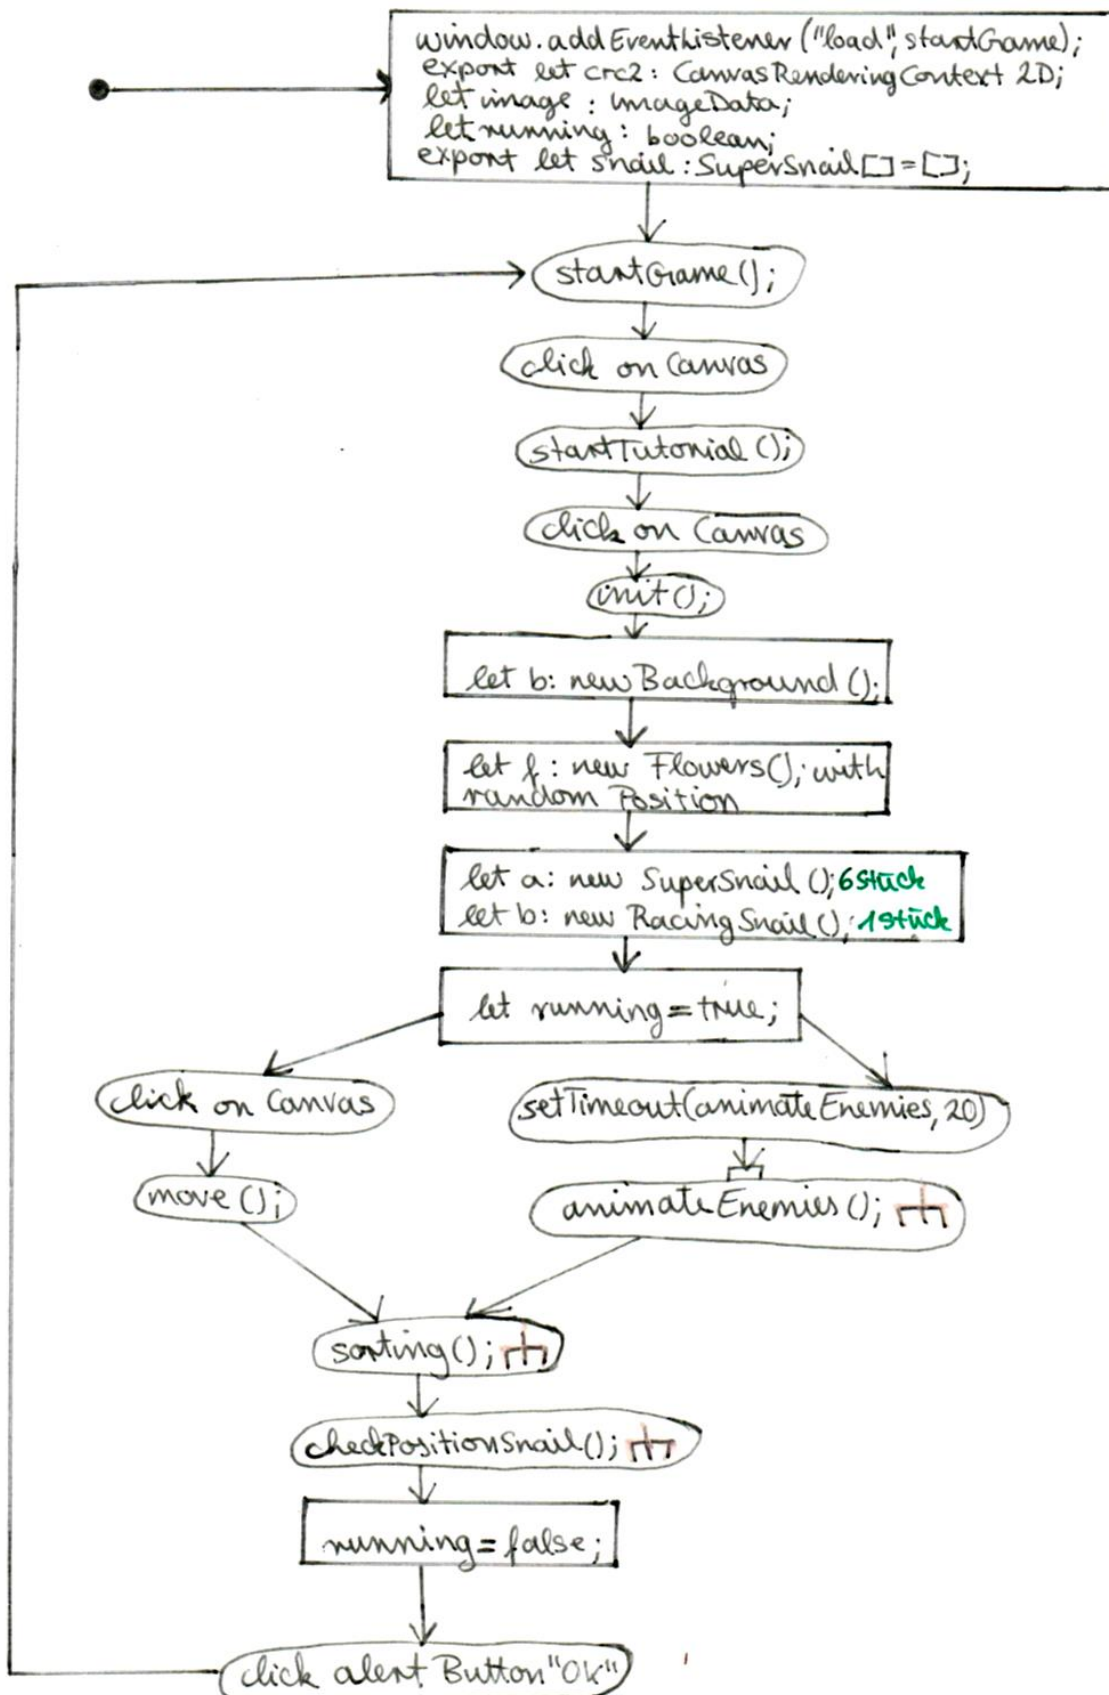 window.addEventListener("load", startGame);
export let crc2: CanvasRenderingContext 2D;
let image: ImageData;
let running: boolean;
export let snail: SuperSnail[] = [];
startGame();
click on Canvas
startTutorial();
click on Canvas
init();
let b: new Background();
let f: new Flowers(); with
random Position
let a: new SuperSnail(); 6 Stück
let b: new RacingSnail(); 1 Stück
let running = true;
click on Canvas
setTimeout(animateEnemies, 20)
move();
animateEnemies();
sorting();
checkPositionSnail();
running = false;
click alert Button "Ok"